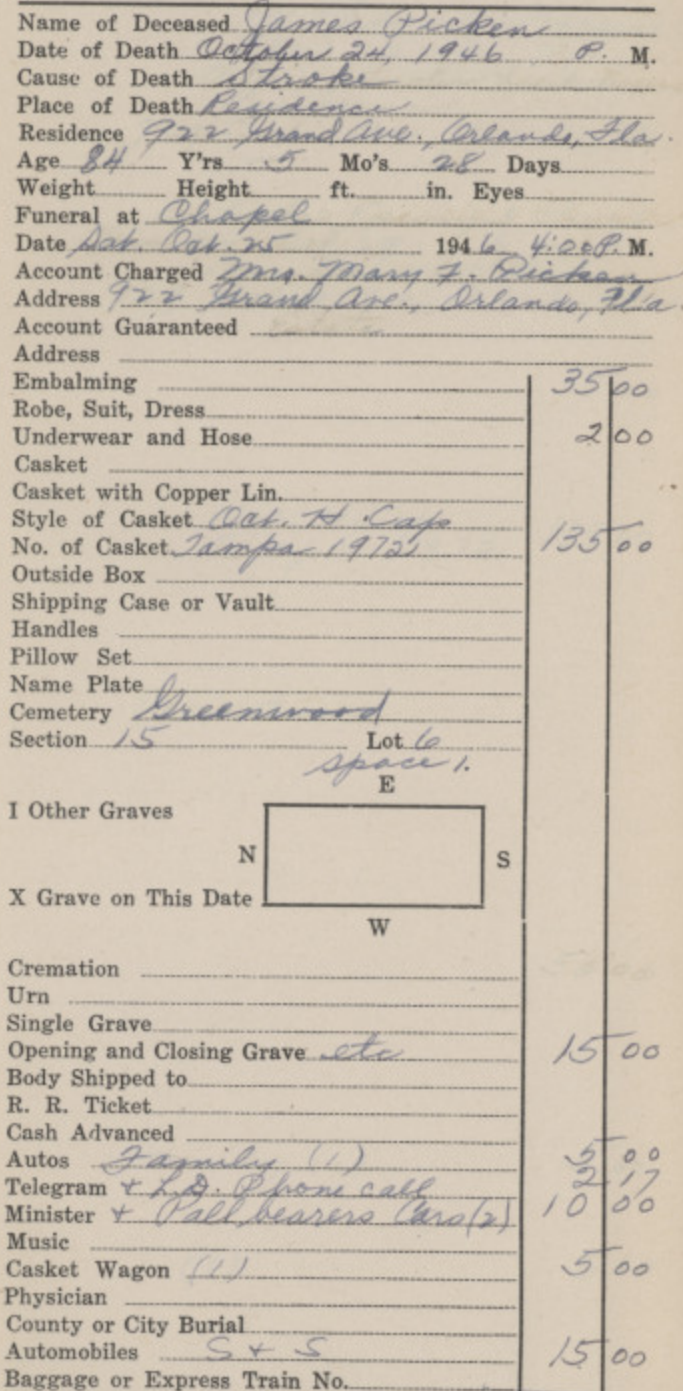 Name of Deceased James Picken
Date of Death October 24, 1946 P. M.
Cause of Death Stroke
Place of Death Residence
Residence 922 Grand Ave., Orlando, Fla.
Age 84 Y'rs 5 Mo's 28 Days
Weight Height ft. in. Eyes
Funeral at Chapel
Date Sat. Oct. 25 1946 4:00 P. M.
Account Charged Mrs. Mary F. Picken
Address 922 Grand Ave., Orlando, Fla.
Account Guaranteed
Address
Embalming 35 00
Robe, Suit, Dress
Underwear and Hose 2 00
Casket
Casket with Copper Lin.
Style of Casket Oct. H Cap
No. of Casket Tampa 1972 135 00
Outside Box
Shipping Case or Vault
Handles
Pillow Set
Name Plate
Cemetery Greenwood
Section 15 Lot 6
space 1.
E
I Other Graves
N S
X Grave on This Date
W
Cremation
Urn
Single Grave
Opening and Closing Grave etc 15 00
Body Shipped to
R. R. Ticket
Cash Advanced
Autos Family (1) 5 00
Telegram + L.D. Phone call 2 17
Minister + Pall bearers Cars (2) 10 00
Music
Casket Wagon (1) 5 00
Physician
County or City Burial
Automobiles S + S 15 00
Baggage or Express Train No.